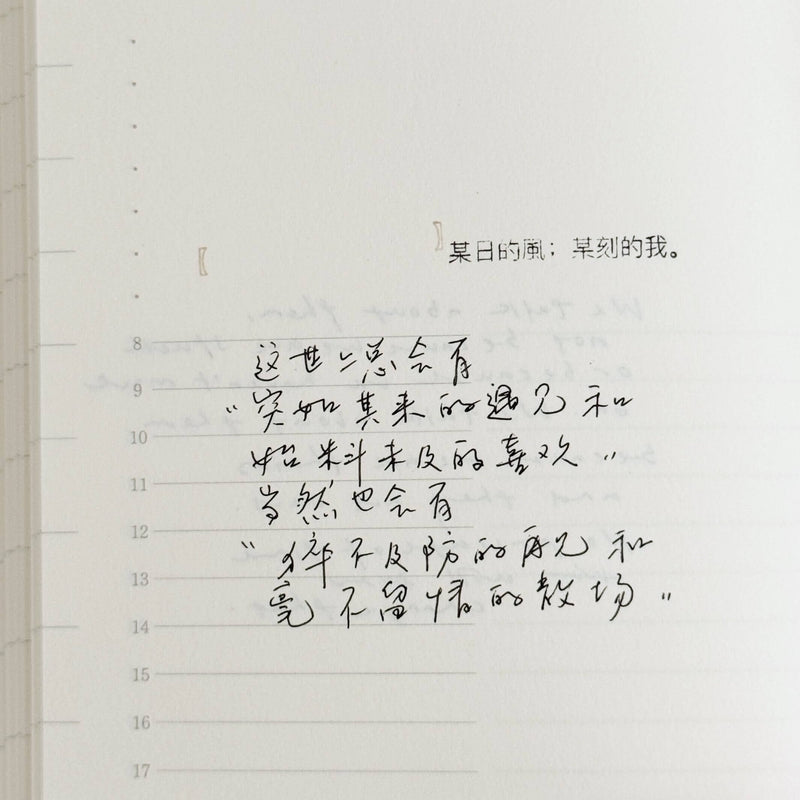 某日的風；某刻的我。
8
这世上总会有
9
“突如其来的遇见和
10
始料未及的喜欢”
11
当然也会有
12
“猝不及防的再见和
13
毫不留情的散场”
14
15
16
17